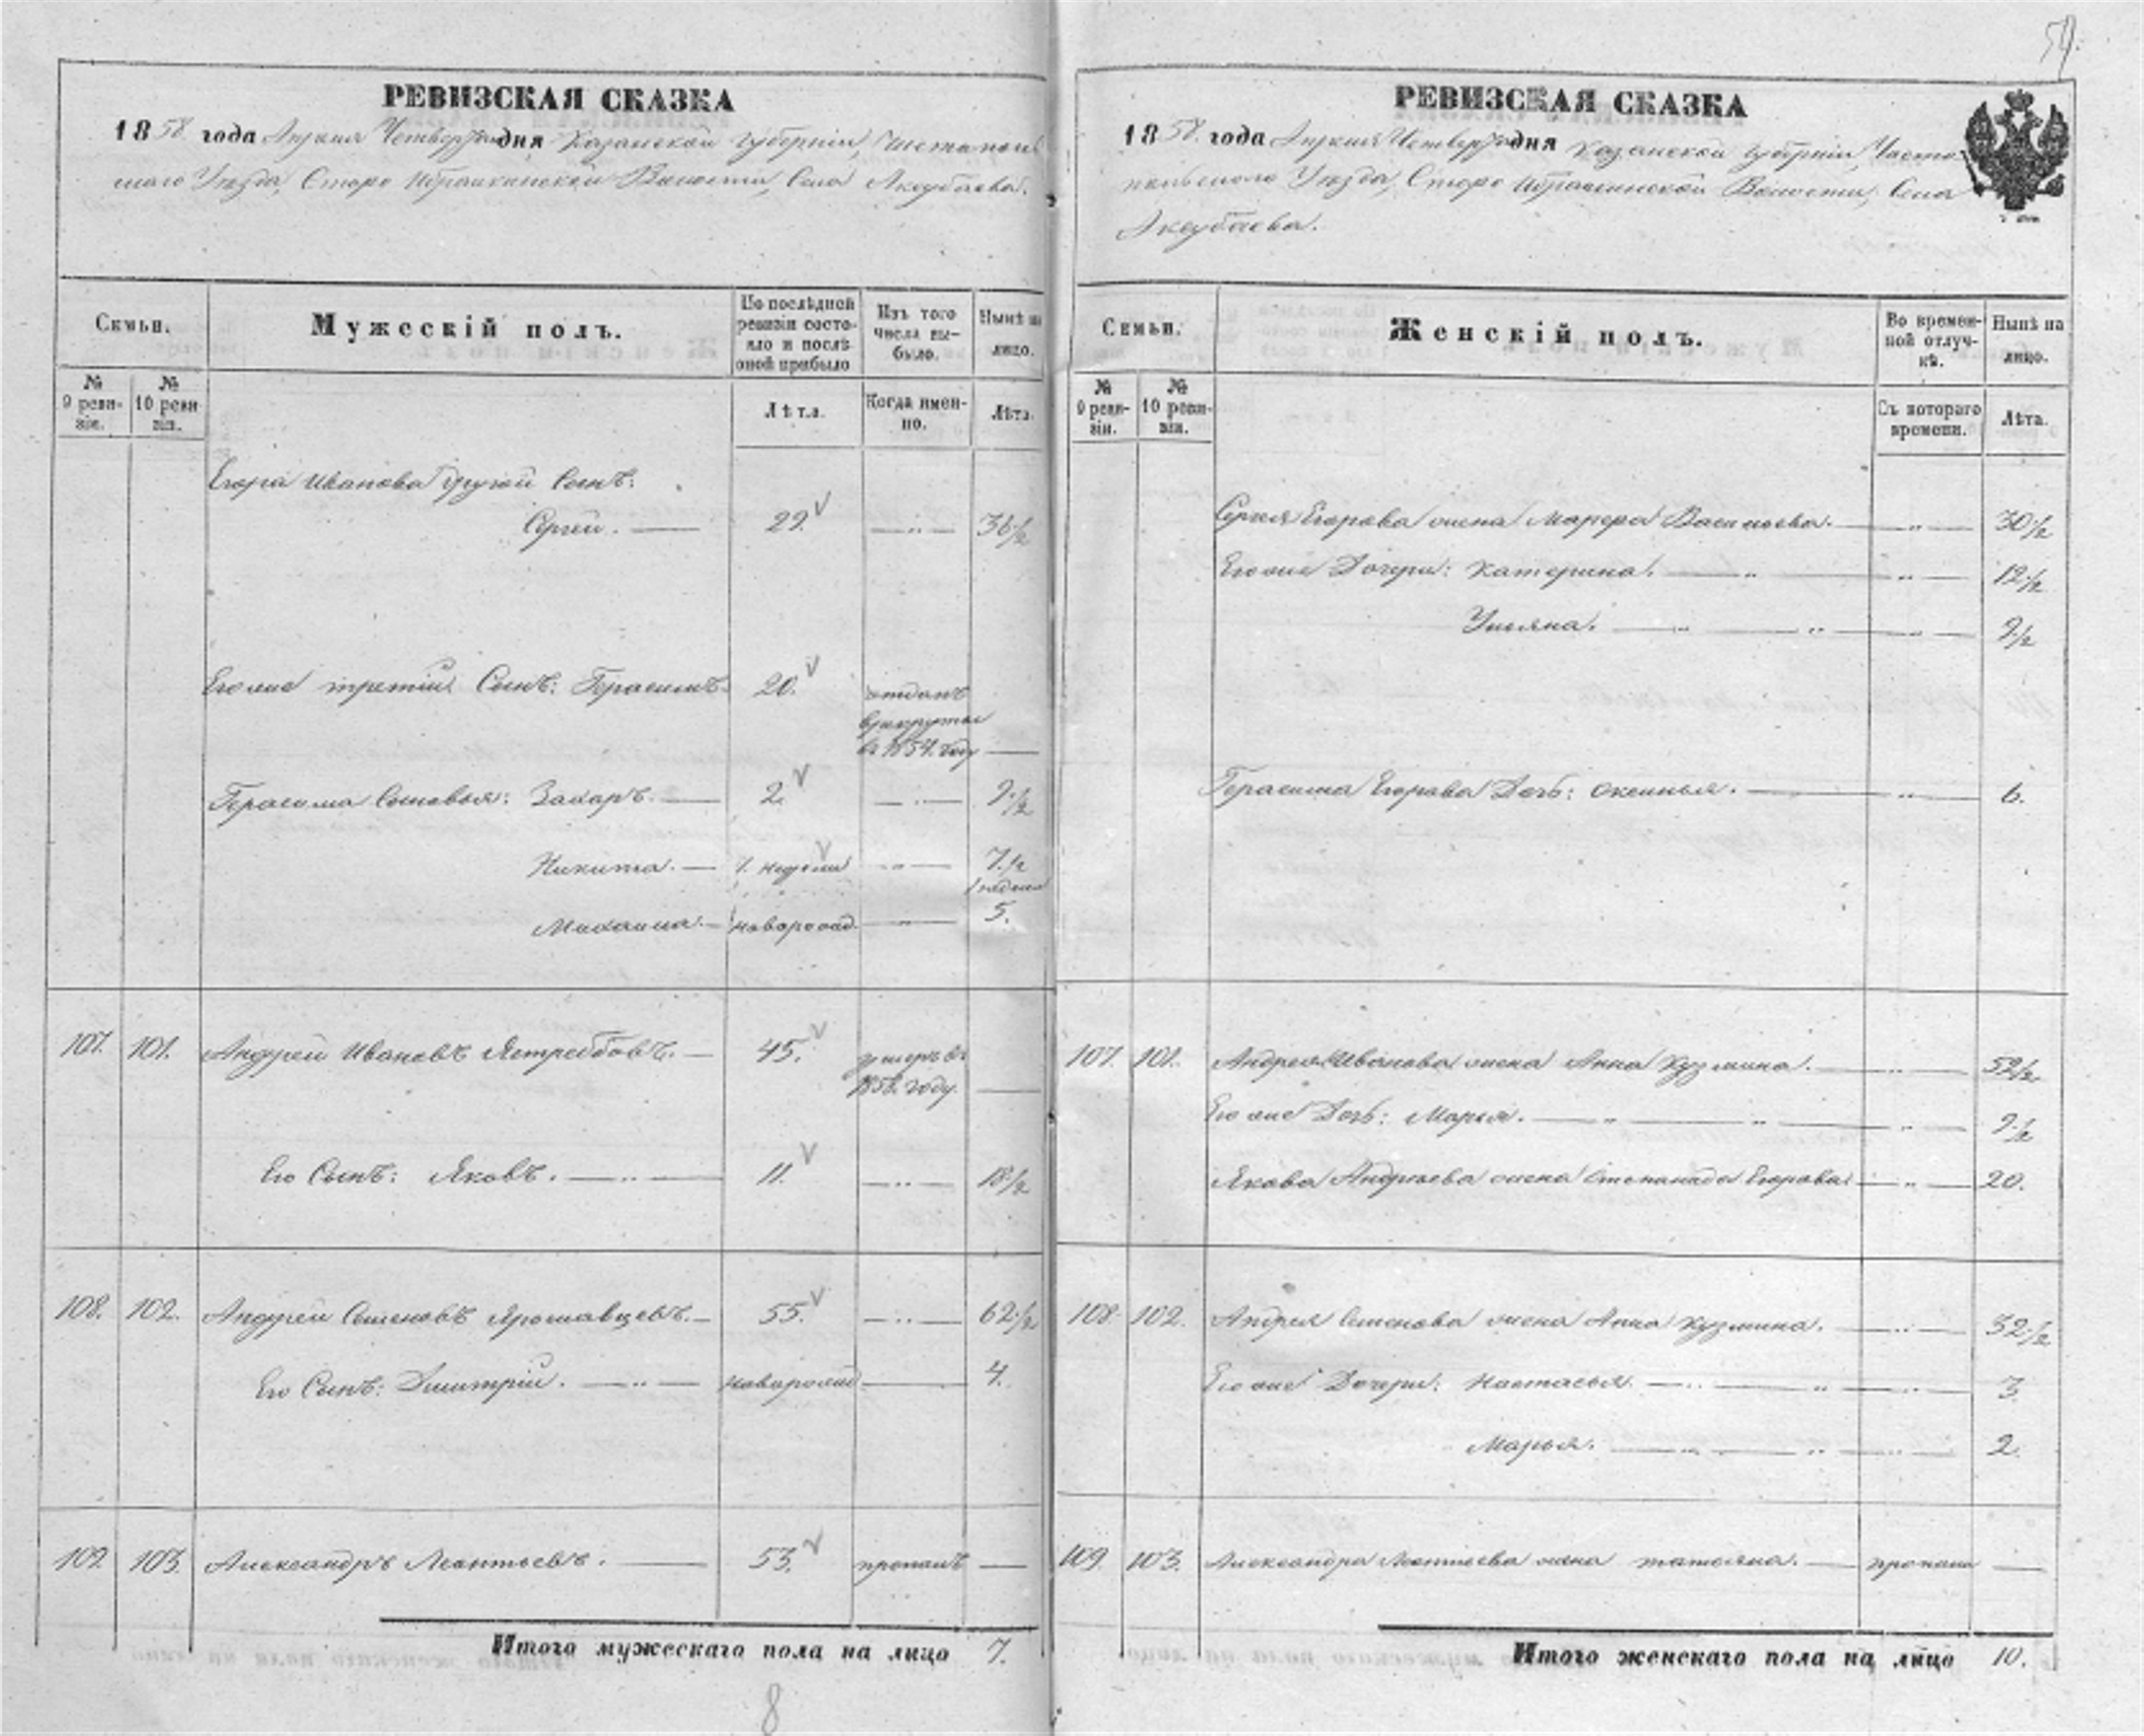 54.
РЕВИЗСКАЯ СКАЗКА
1858. года Апреля Четвертаго дня Казанской губерніи, Чистополь
скаго Уѣзда, Старо Ибрайкинской Волости, Села Аксубаева.
Семьи.
Мужескій полъ.
По послѣдней
ревизіи состо-
яло и послѣ
оной прибыло
Изъ того
числа вы-
было.
Нынѣ на
лицо.
№
9 реви-
зіи.
№
10 реви
зіи.
Лѣта.
Когда имен-
но.
Лѣта.
Егора Иванова другой Сынъ:
Сергей. — 29. — „ — 36 ½
Его же третій Сынъ: Герасимъ. 20. отданъ
в рекруты
в 1854. году —
Герасима Сыновья: Захаръ. — 2. — „ — 9 ½
Никита. — 1. недели — „ — 7 ½
1 неделя
Михаила. — новорожд. — „ — 5.
107. 101. Андрей Ивановъ Ястребовъ. — 45. умеръ въ
1858. году. —
Его Сынъ: Яковъ. — „ — 11. — „ — 18 ½
108. 102. Андрей Семеновъ Ярославцевъ. — 55. — „ — 62 ½
Его Сынъ: Дмитрій. — „ — новорожд — 4.
109. 103. Александръ Леонтьевъ. — 53. пропалъ —
Итого мужескаго пола на лицо 7.
8
РЕВИЗСКАЯ СКАЗКА
1858. года Апреля Четвертаго дня Казанской губерніи, Чисто-
польскаго Уѣзда, Старо Ибрайкинской Волости, Села
Аксубаева.
Семьи.
Женскій полъ.
Во времен-
ной отлуч-
кѣ.
Нынѣ на
лицо.
№
9 реви-
зіи.
№
10 реви-
зіи.
Съ котораго
времени.
Лѣта.
Сергея Егорова жена Марфа Васильева. — „ — 30 ½
Его же Дочери: Катерина. — „ — „ — 12 ½
Ульяна. — „ — „ — „ — 9 ½
Герасима Егорова Дочь: Оксинья. — „ — 6.
107. 101. Андрея Иванова жена Анна Кузмина. — „ — 52 ½
Его же Дочь: Марья. — „ — „ — „ — 9 ½
Якова Андреева жена Степанида Егорова — „ — 20.
108. 102. Андрея Семенова жена Анна Кузмина. — „ — 32 ½
Его же Дочери: Настасья. — „ — „ — „ — 3.
Марья. — „ — „ — „ — 2.
109. 103. Александра Леонтьева жена Татьяна. — пропала —
Итого женскаго пола на лицо 10.